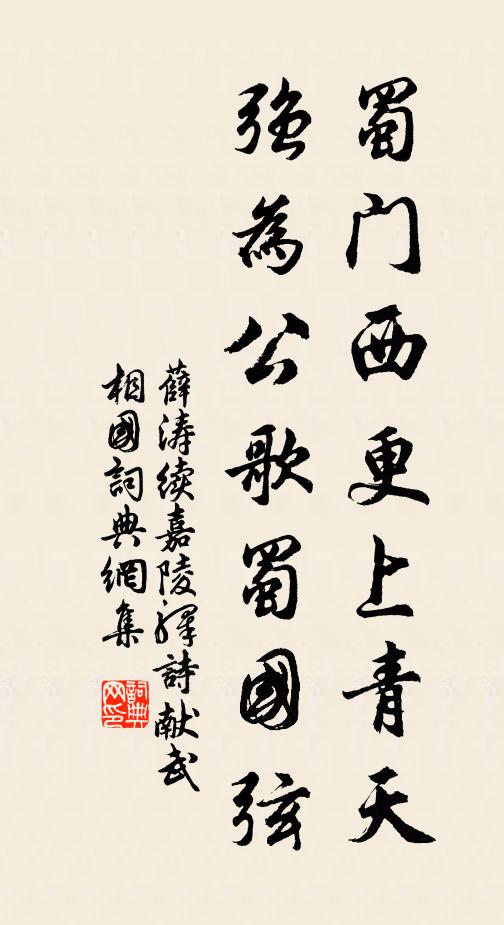 蜀门西更上青天
強為公歌蜀國弦
薛涛续嘉陵驿詩献武
相國詞典網集
詞典网印